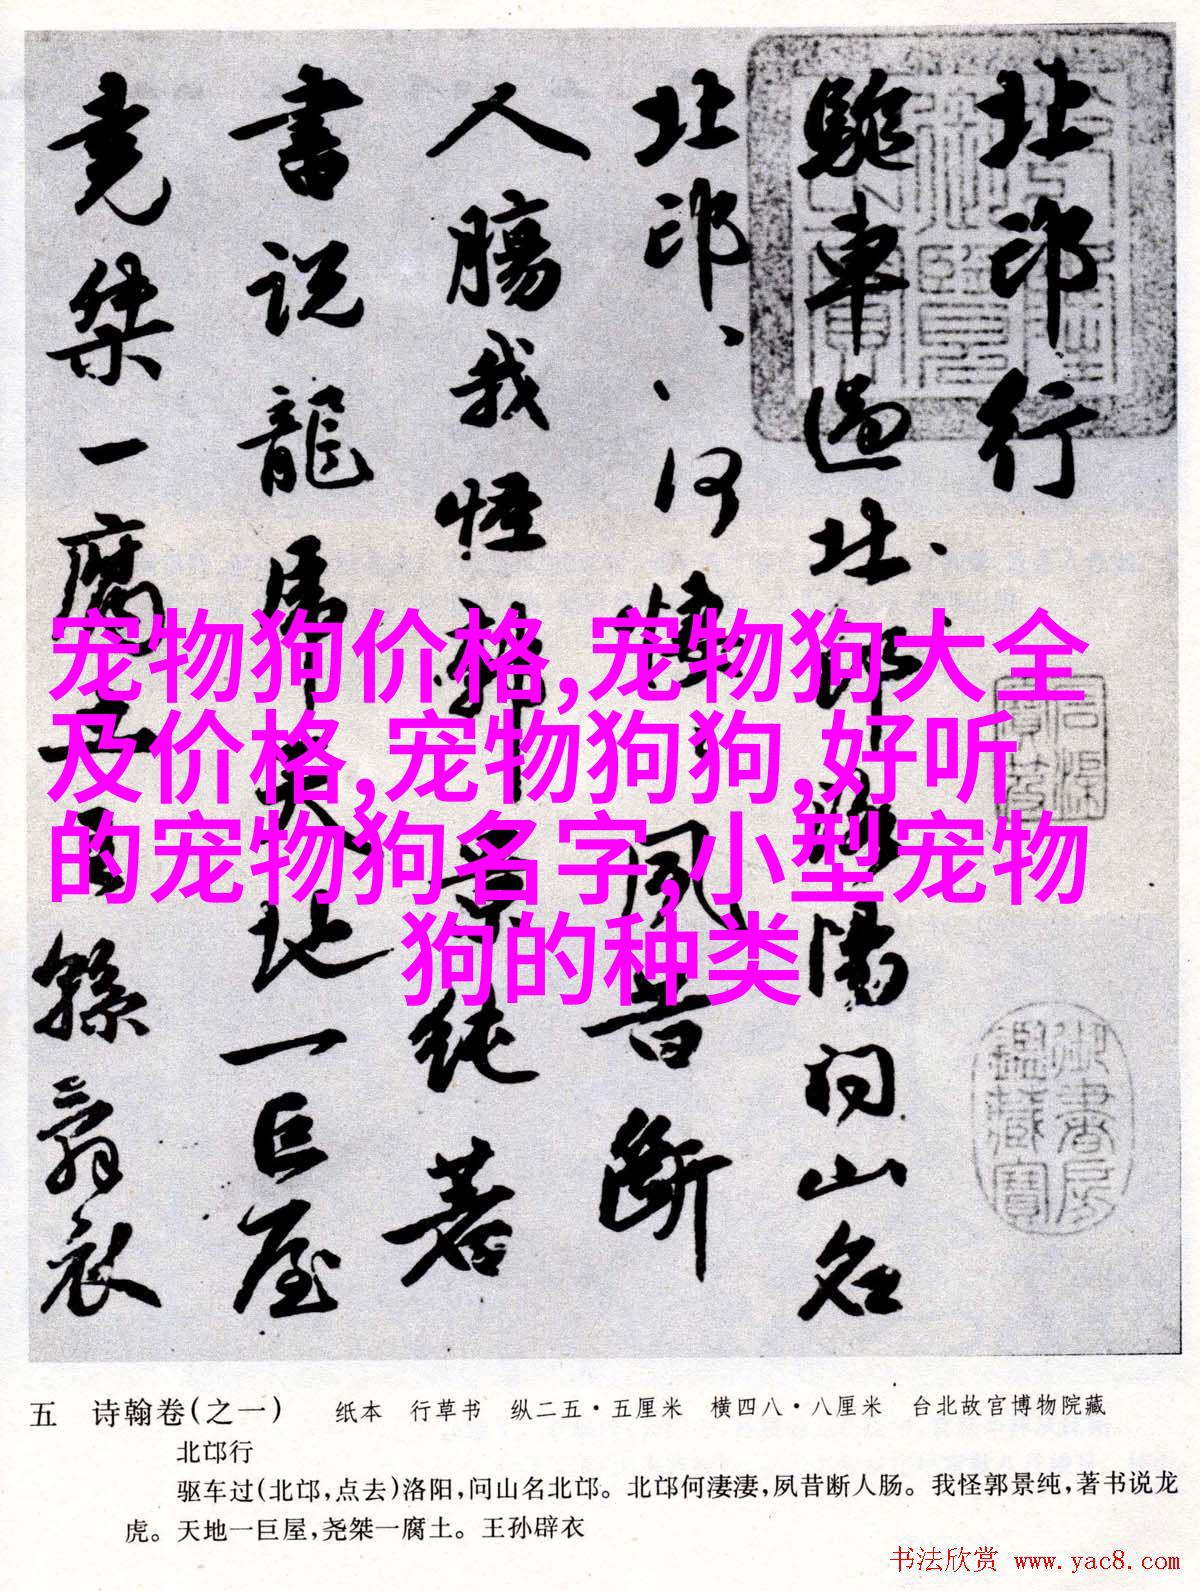 北邙行
驱車過北邙、洛陽问山名
北邙、、何悽、夙昔断
人腸我怪郭景纯著
書说龍虎天地一巨屋
尧桀一腐土王孫辟衣
宠物狗价格,宠物狗大全
及价格,宠物狗狗,好听
的宠物狗名字,小型宠物
狗的种类
五 诗翰卷(之一) 纸本 行草书 纵二五·五厘米 横四八·八厘米 台北故宫博物院藏
北邙行
驱车过(北邙,点去)洛阳,问山名北邙。北邙何淒淒,夙昔断人肠。我怪郭景纯,著书说龙
虎。天地一巨屋,尧桀一腐土。王孙辟衣
书法欣赏 www.yac8.com